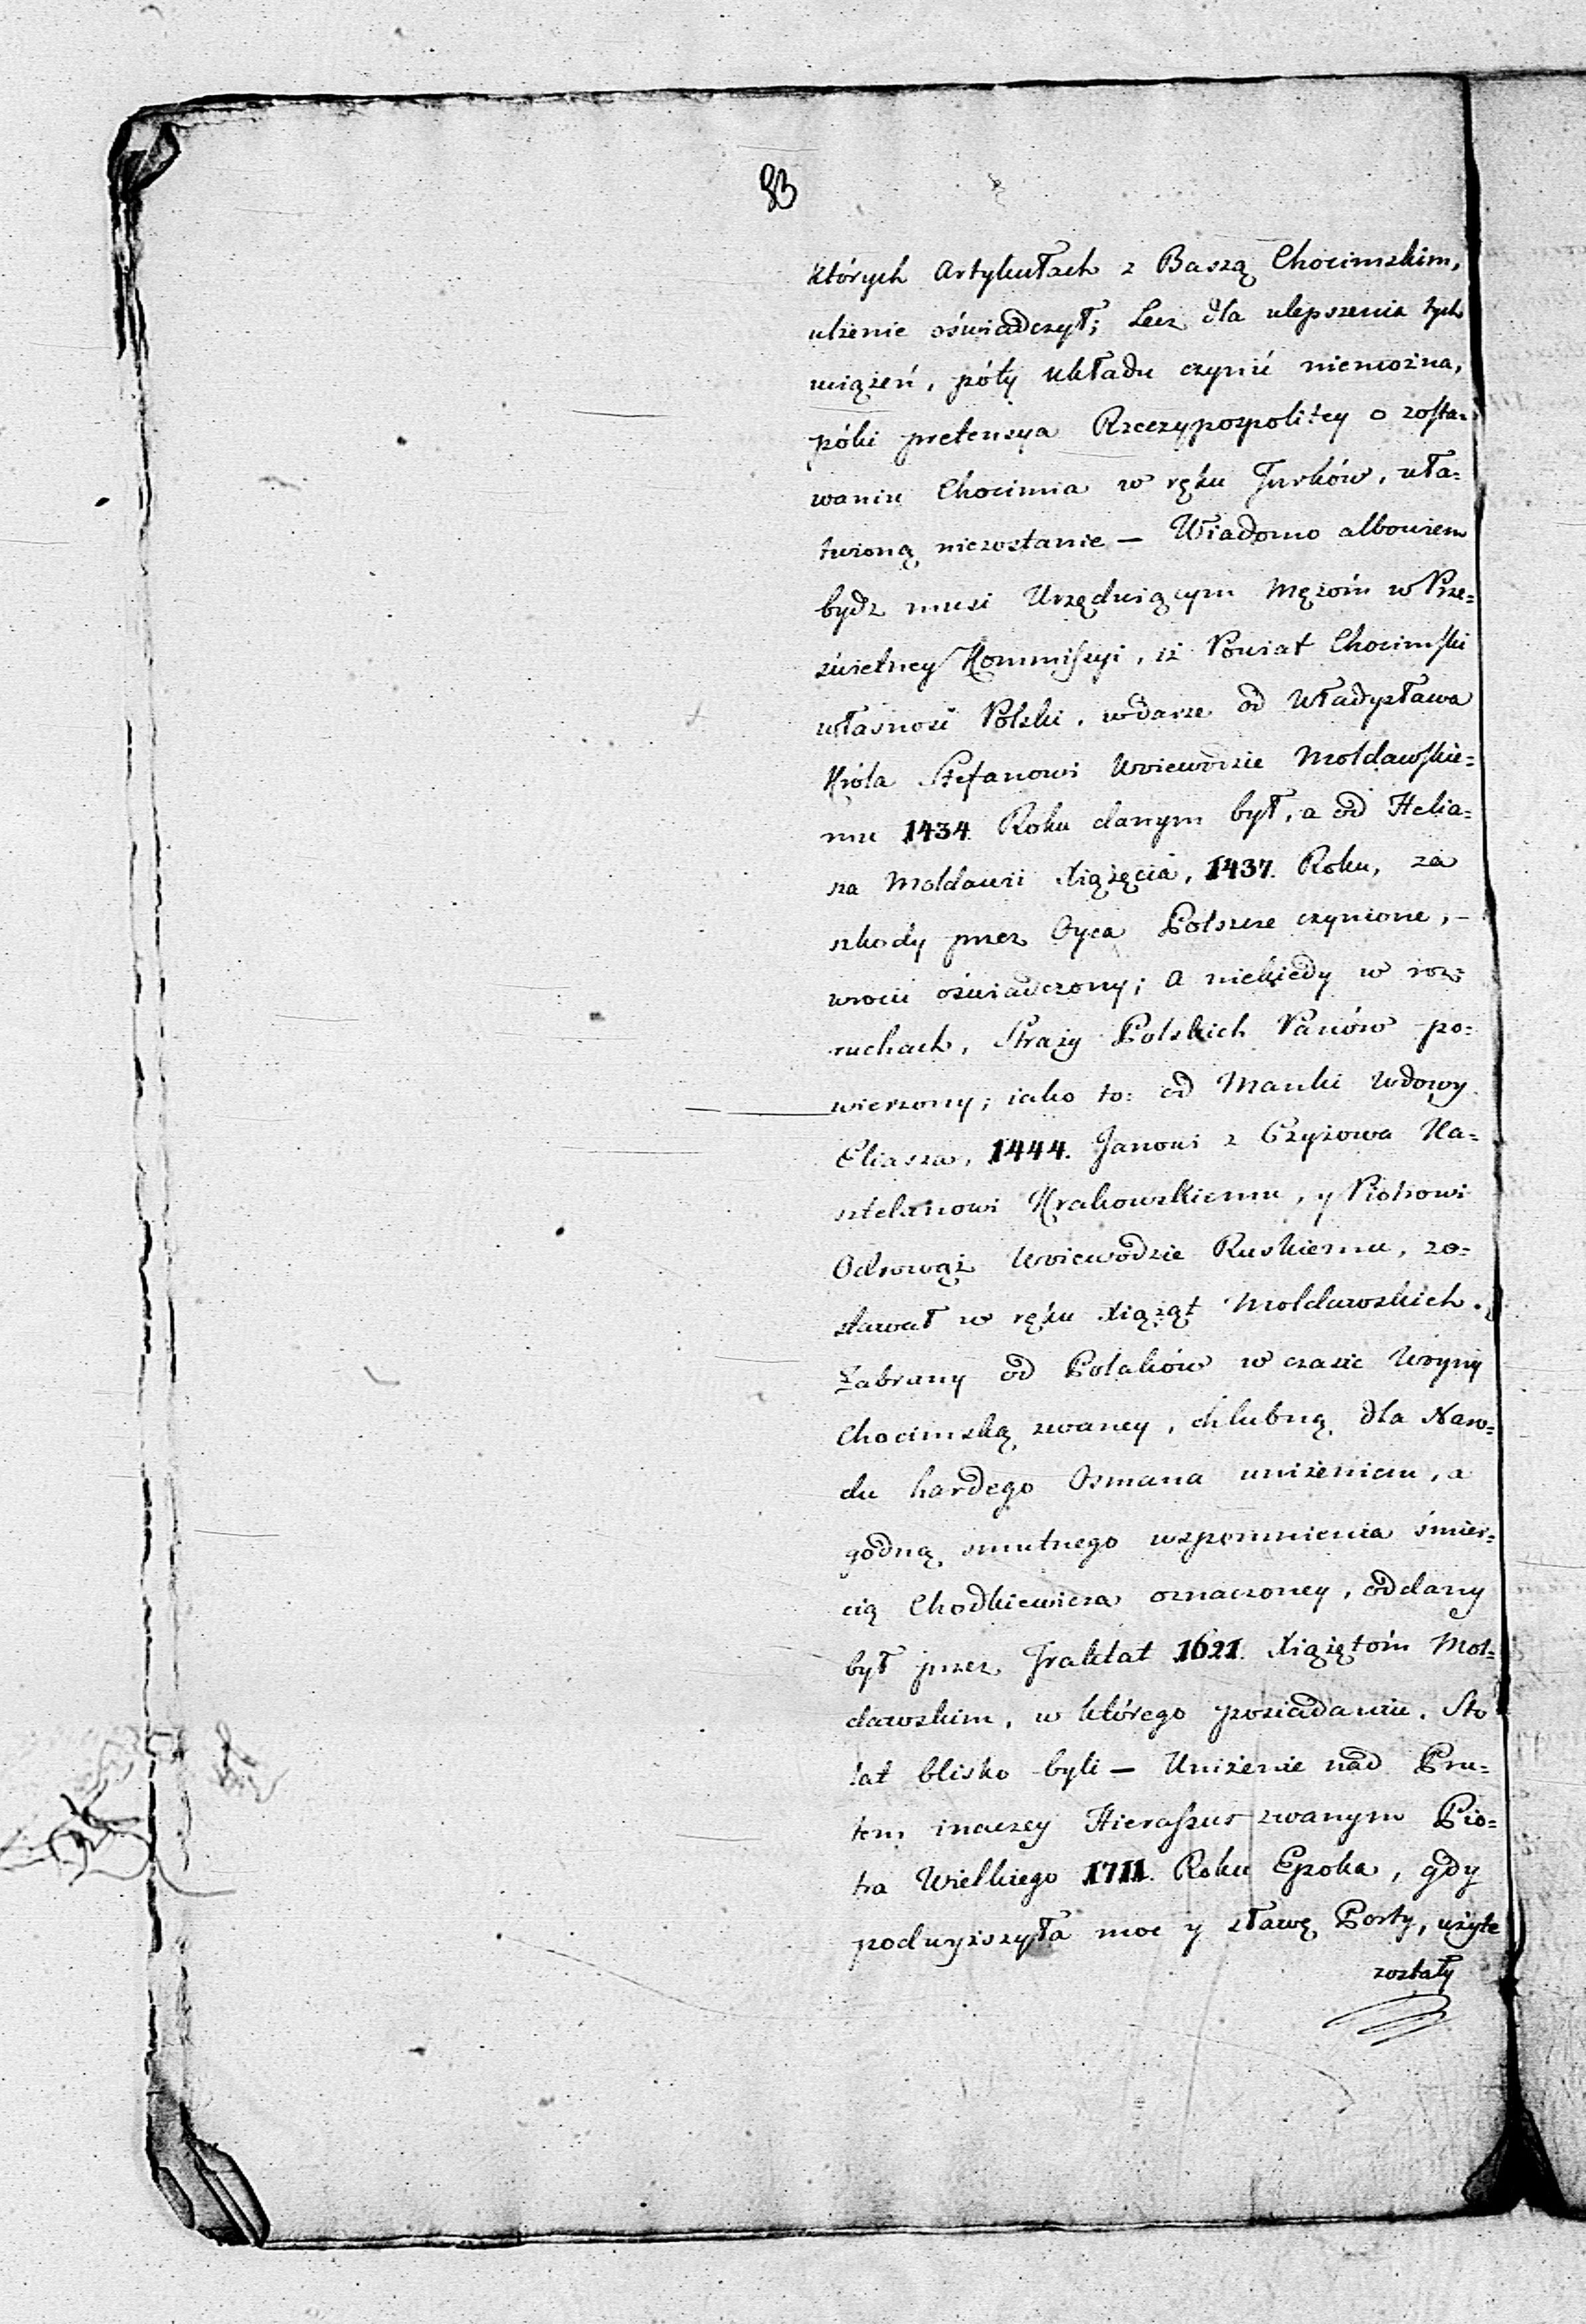 83
których Artykułach z Baszą Chocimskim,
ulżenie oświadczył; Lecz dla ulepszenia tych
wiązeń, póty układu czynić niemożna,
póki pretensya Rzeczypospolitey o zosta-
waniu Chocimia w ręku Turków, uła=
twioną niezostanie — Wiadomo albowiem
bydz musi Urzęduiącym Mężom w Prze=
świetney Kommissyi, iż Powiat Chocimski
własność Polski, wdarze od Władysława
Króla Stefanowi Woiewodzie Mołdawskie=
mu 1434. Roku danym był, a od Helia=
sza Mołdawii Xiążęcia, 1437. Roku, za
szkody przez Oyca Polszcze czynione, –
wrócić oświadczony; a niekiedy w roz=
ruchach, Straży Polskich Panów po=
wierzony; iako to: od Maruki Wdowy
Eliasza, 1444. Janowi z Czyżowa Ka=
sztelanowi Krakowskiemu, y Piotrowi
Odrowąż Woiewodzie Ruskiemu, zo=
stawał w ręku Xiążąt Mołdawskich.
Zabrany od Polaków w czasie Woyny
Chocimską zwaney, chlubną dla Naro=
du hardego Osmana uniżeniem, a
godną smutnego wspomnienia śmier=
cią Chodkiewicza oznaczoney, oddany
był przez Traktat 1621. Xiążętom Moł=
dawskim, w którego posiadaniu, Sto
lat blisko byli — Uniżenie nad Pru=
tem inaczey Hierassus zwanym Pio=
tra Wielkiego 1711. Roku Epoka, gdy
podwyższyła moc y sławę Porty, użyte
zostały